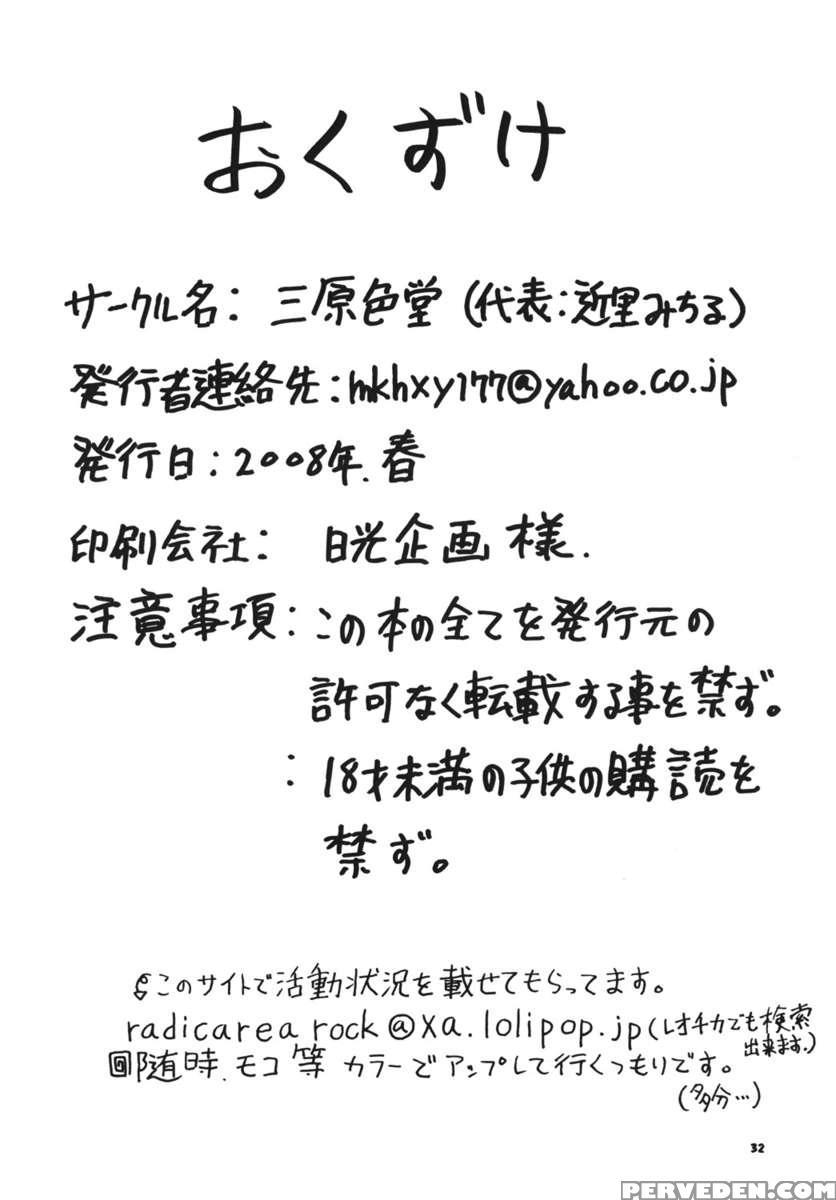 おくずけ
サークル名：三原色堂（代表：近里みちる）
発行者連絡先：mkhxy177@yahoo.co.jp
発行日：2008年.春
印刷会社：日光企画 様.
注意事項：この本の全てを発行元の
許可なく転載する事を禁ず。
：18才未満の子供の購読を
禁ず。
このサイトで活動状況を載せてもらってます。
radicarea rock@xa.lolipop.jp（レオチカでも検索
出来ます。）
回随時、モコ等 カラーでアップして行くつもりです。
（多分…）
32
PERVEDEN.COM